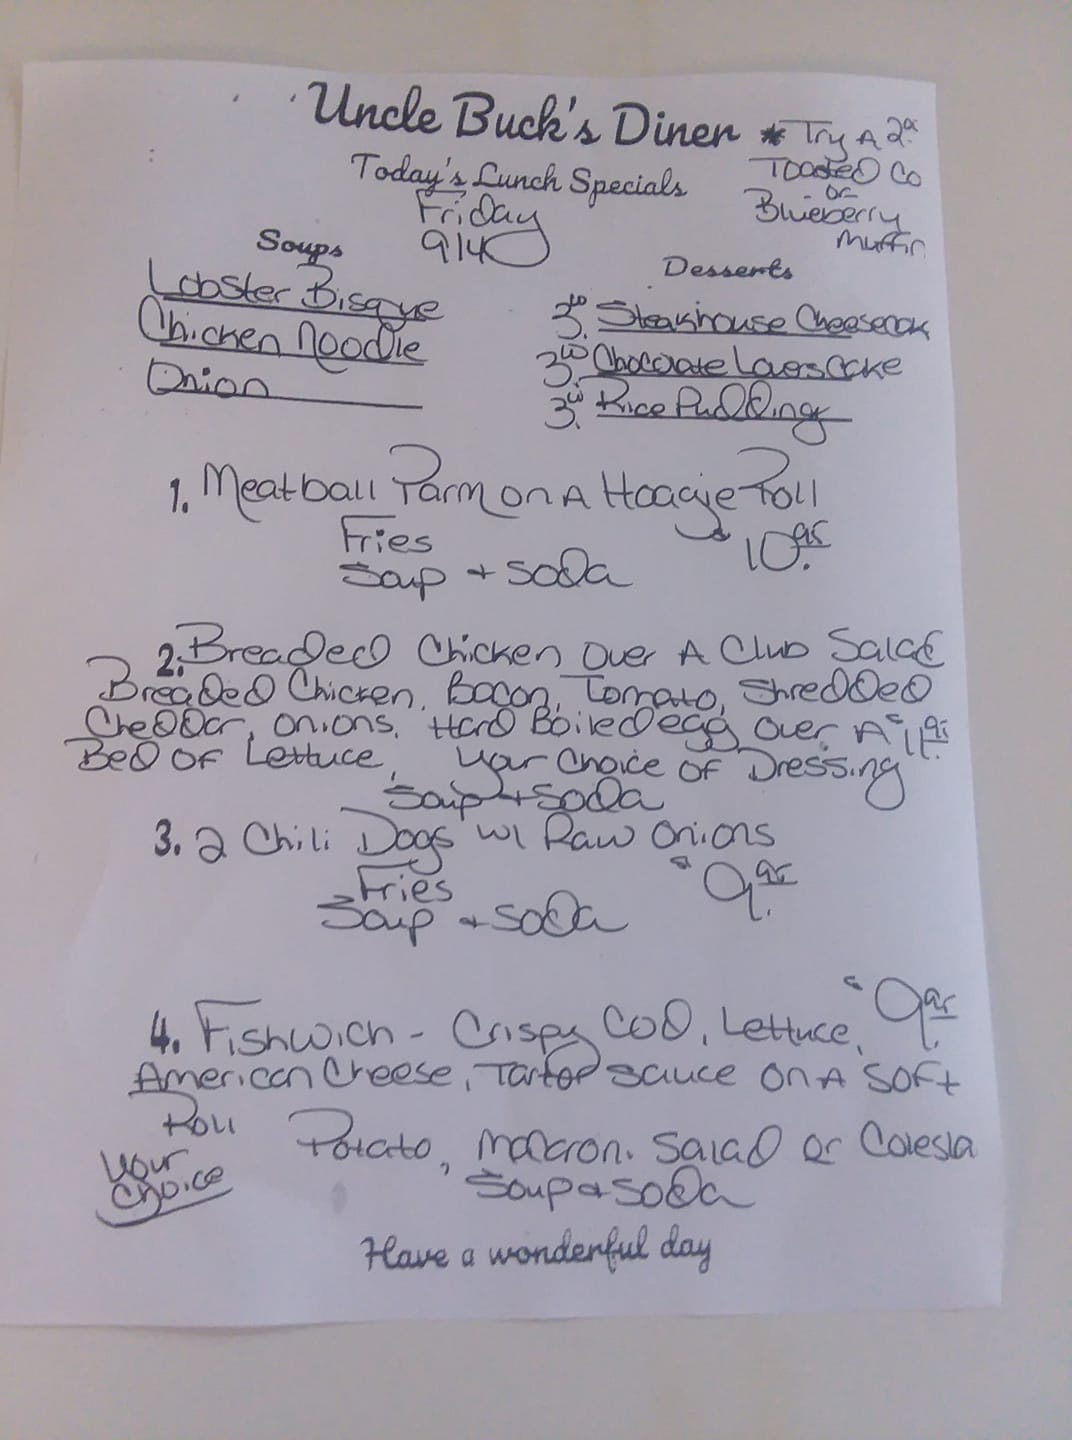 Uncle Buck's Diner
* Try A
Toasted Co
or
Blueberry
Muffin
Today's Lunch Specials
Friday
9/14
Soups
Lobster Bisque
Chicken Noodle
Onion
Desserts
3. Steakhouse Cheesecak
3. Chocolate Lovers Cake
3. Rice Pudding
1. Meatball Parm on A Hoagie Roll
Fries 10.95
Soup + soda
2. Breaded Chicken over A Club Salad
Breaded Chicken, Bacon, Tomato, Shredded
Cheddar, onions, Hard Boiled egg over A 11.95
Bed of Lettuce, your choice of Dressing
Soup + soda
3. 2 Chili Dogs w/ Raw onions
Fries 9.95
Soup + soda
4. Fishwich - Crispy Cod, Lettuce, 9.95
American Cheese, Tartar sauce on A soft
Roll
Your Choice
Potato, Macaroni Salad or Colesla
Soup & soda
Have a wonderful day